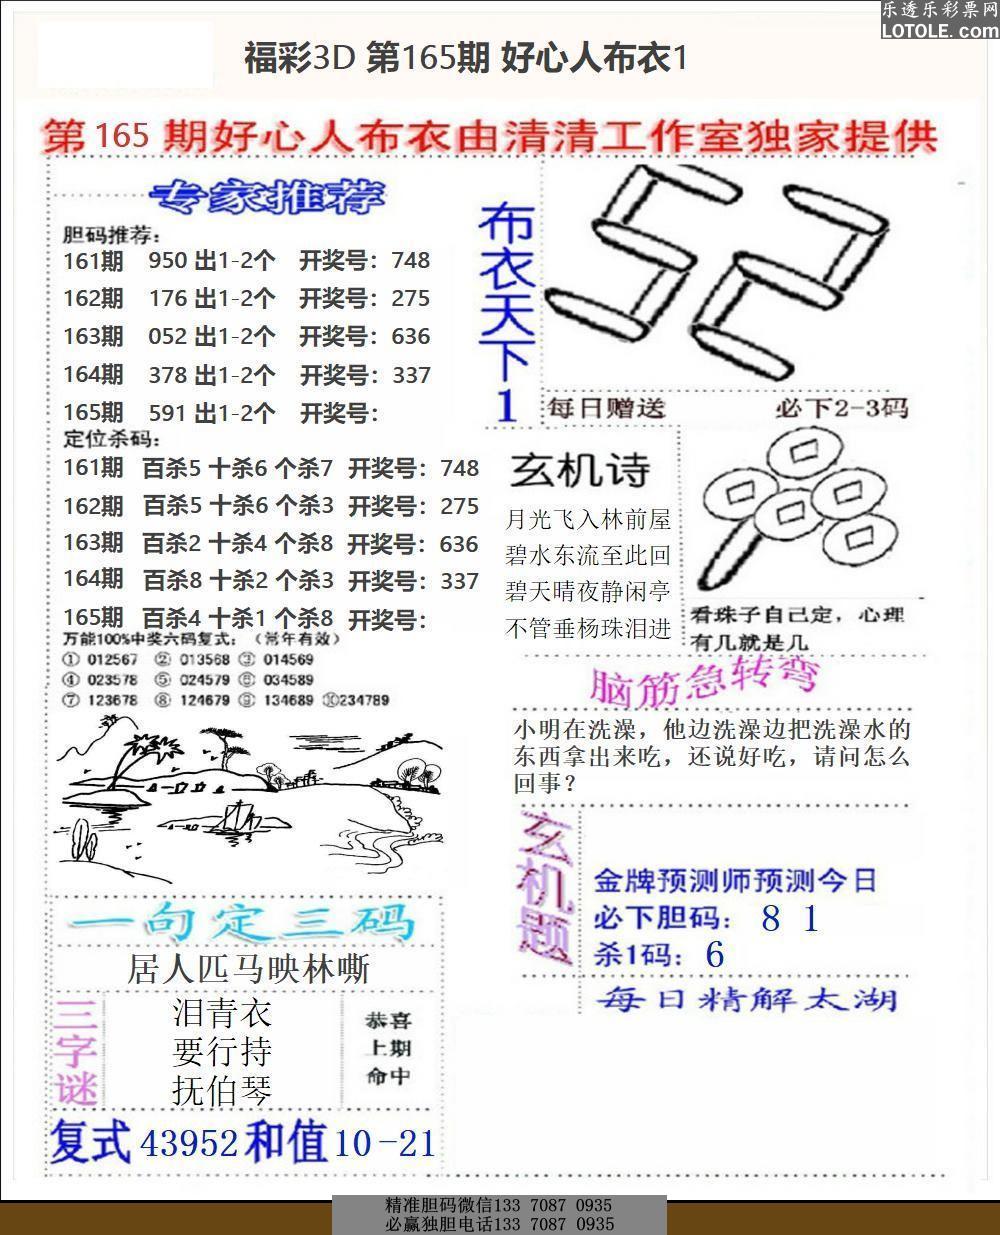 乐透乐彩票网
LOTOLE.com
福彩3D 第165期 好心人布衣1
第165 期好心人布衣由清清工作室独家提供
专家推荐
胆码推荐：
161期 950 出1-2个 开奖号：748
162期 176 出1-2个 开奖号：275
163期 052 出1-2个 开奖号：636
164期 378 出1-2个 开奖号：337
165期 591 出1-2个 开奖号：
定位杀码：
161期 百杀5 十杀6 个杀7 开奖号：748
162期 百杀5 十杀6 个杀3 开奖号：275
163期 百杀2 十杀4 个杀8 开奖号：636
164期 百杀8 十杀2 个杀3 开奖号：337
165期 百杀4 十杀1 个杀8 开奖号：
万能100%中奖六码复式：（常年有效）
① 012567 ② 013568 ③ 014569
④ 023578 ⑤ 024579 ⑥ 034589
⑦ 123678 ⑧ 124679 ⑨ 134689 ⑩234789
一句定三码
居人匹马映林嘶
三字谜
泪青衣
要行持
抚伯琴
恭喜
上期
命中
复式 43952 和值 10-21
布衣天下1
52
每日赠送 必下2-3码
玄机诗
月光飞入林前屋
碧水东流至此回
碧天晴夜静闲亭
不管垂杨珠泪进
看珠子自己定，心理
有几就是几
脑筋急转弯
小明在洗澡，他边洗澡边把洗澡水的
东西拿出来吃，还说好吃，请问怎么
回事？
玄机题
金牌预测师预测今日
必下胆码： 8 1
杀1码： 6
每日精解太湖
精准胆码微信133 7087 0935
必赢独胆电话133 7087 0935